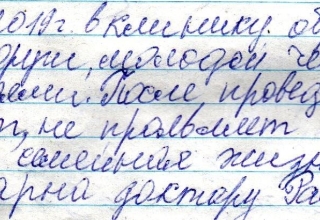 2019г. в клинику об
други, молодой че
ами. После провед
т, не проявляет
семейная жизн
арна доктору Га